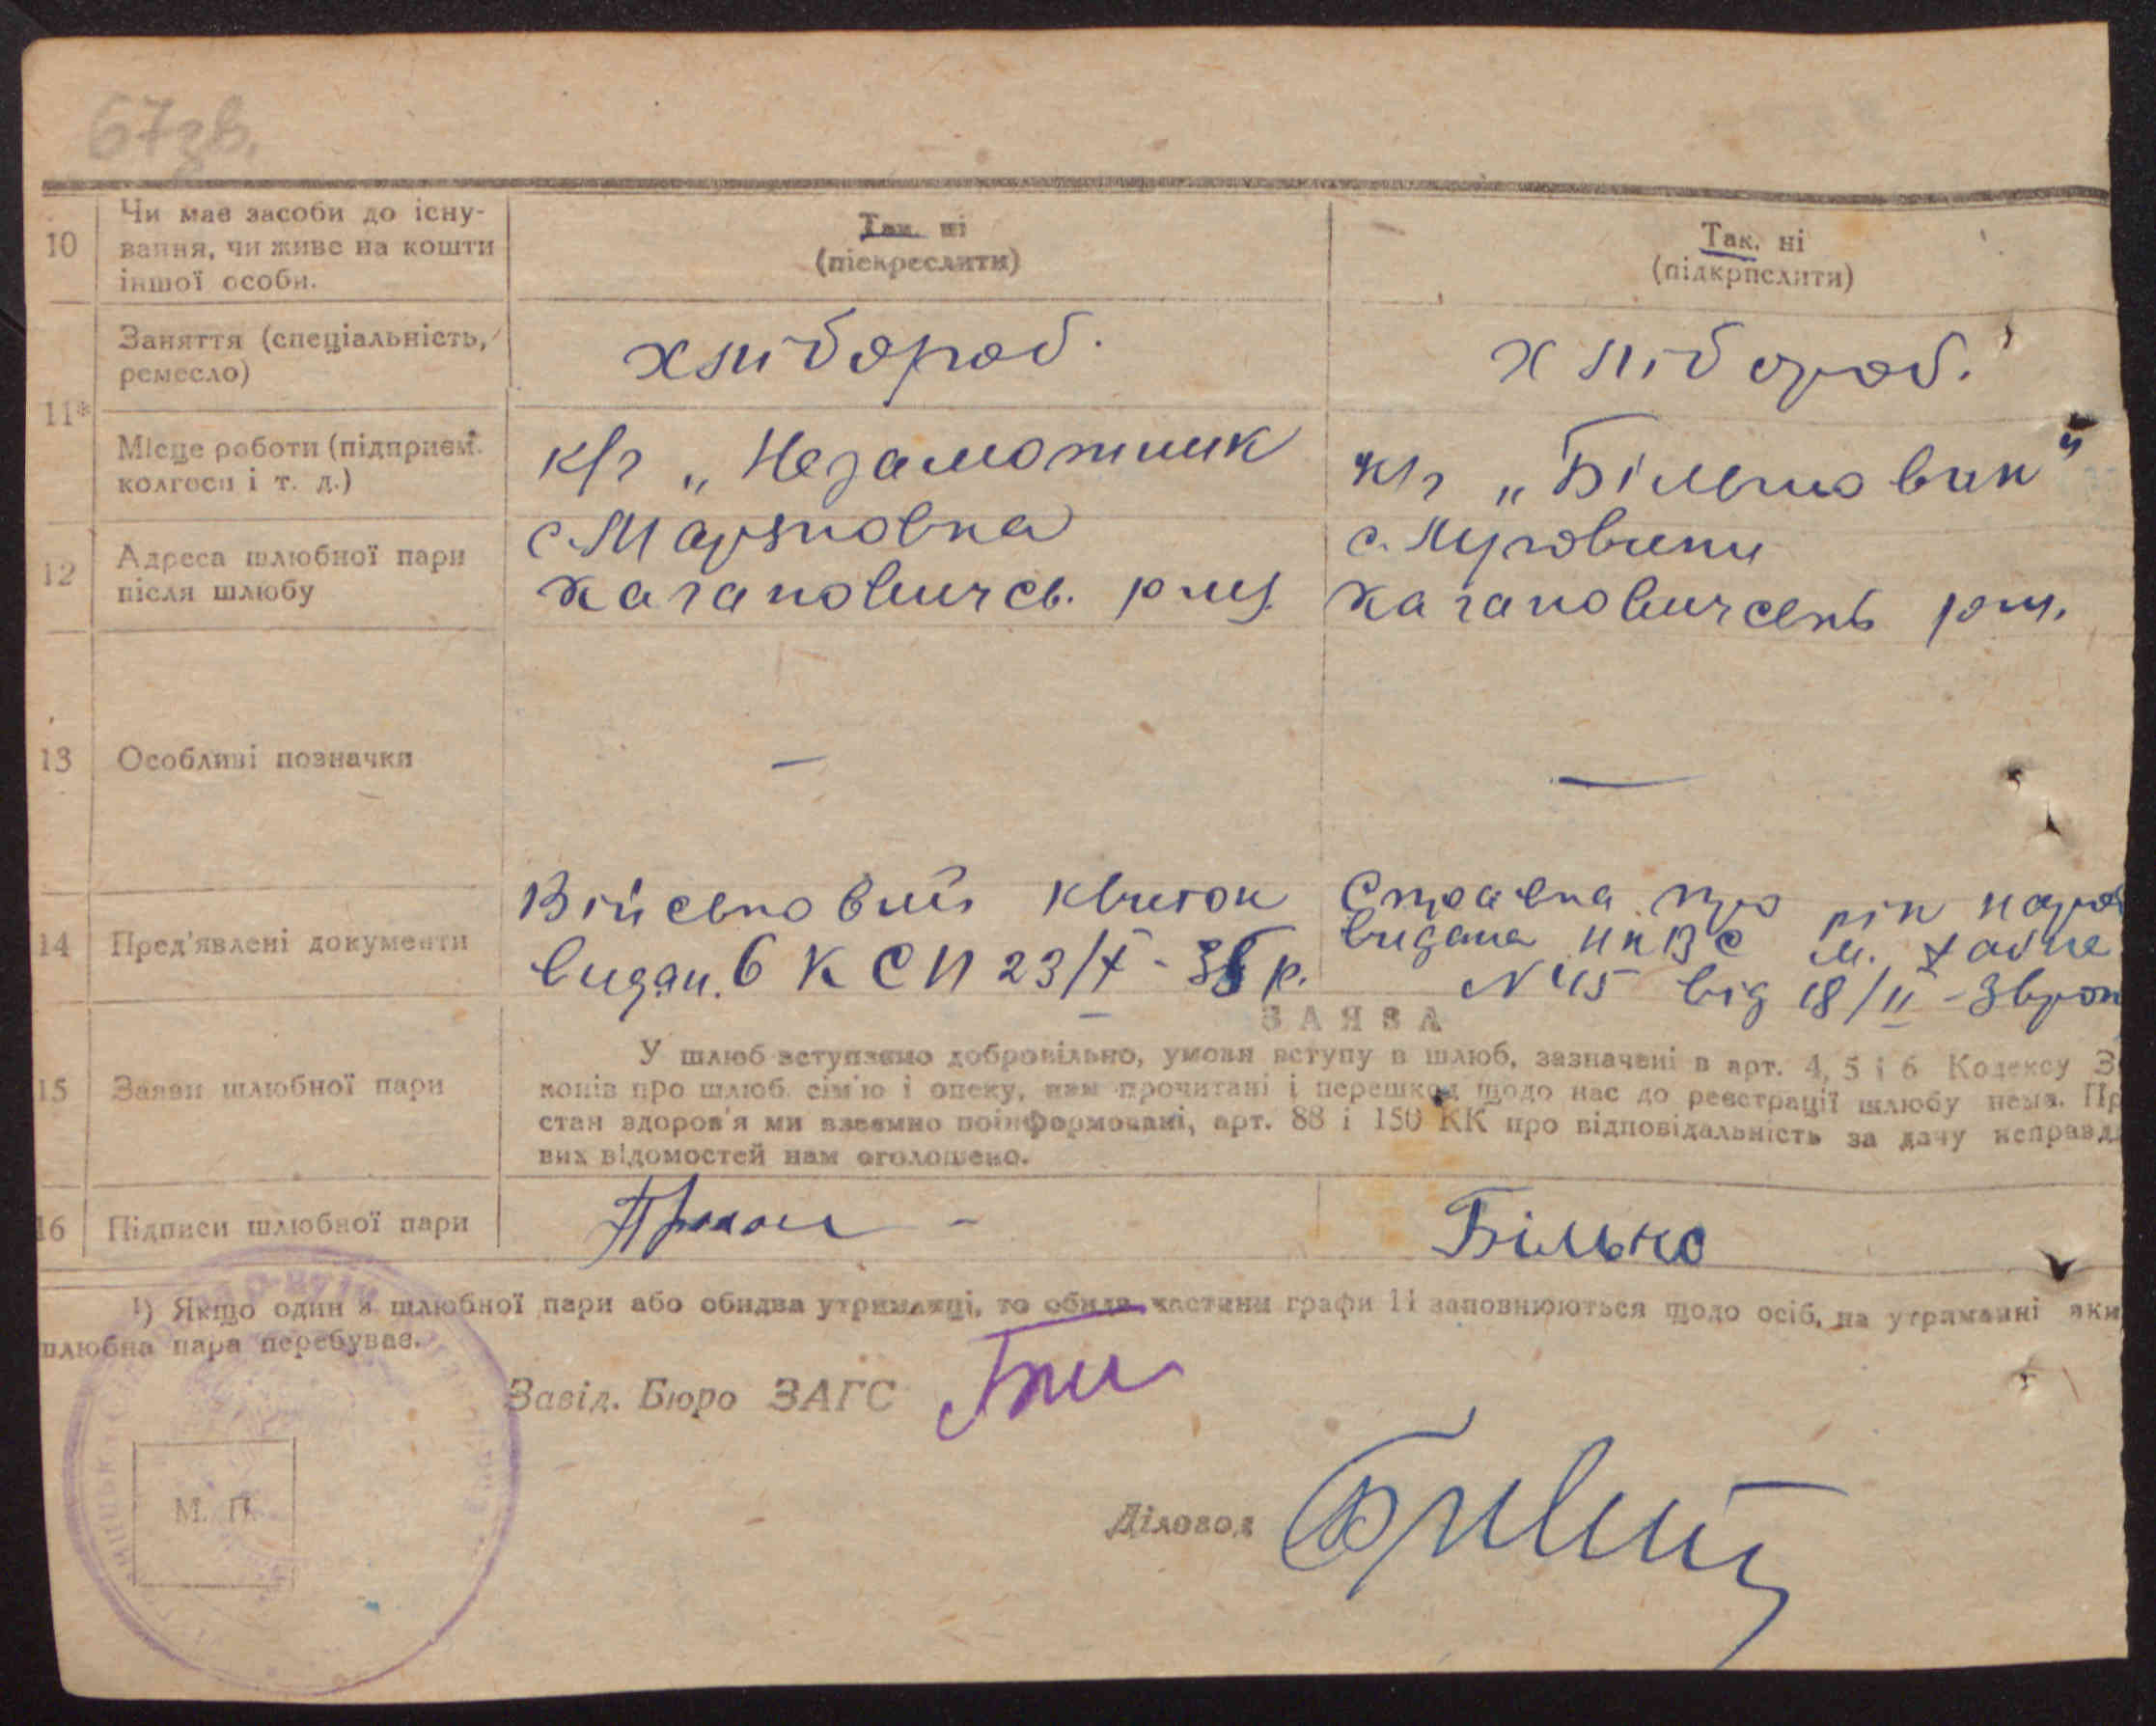 67зв.
10
Чи має засоби до існу-
вання, чи живе на кошти
іншої особи.
Так. ні
(піскреслити)
Так. ні
(підкрпслити)
11*
Заняття (спеціальність,
ремесло)
хлібороб.
хлібороб.
Місце роботи (підприєм.
колгосп і т. д.)
к/г „Незаможник
к/г „Більшовик"
12
Адреса шлюбної пари
після шлюбу
с. Мар'яновка
с. Луговики
Кагановичсь. р-ну
Кагановичськ р-ну.
13
Особливі позначки
—
—
14
Пред'явлені документи
Військовий квиток
видан. 6 КСП 23/X - 36 р.
Справка про рік народ
видана НКВС м.
N 45 від 18/II - 36 рок
ЗАЯВА
15
Заяви шлюбної пари
У шлюб вступаємо добровільно, умови вступу в шлюб, зазначені в арт. 4, 5 і 6 Кодексу З
конів про шлюб, сім'ю і опеку, нам прочитані і перешкод щодо нас до реєстрації шлюбу нема. Пр
стан здоров'я ми взаємно поінформовані, арт. 88 і 150 КК про відповідальність за дачу неправд
вих відомостей нам оголошено.
16
Підписи шлюбної пари
Білько
¹) Якщо один з шлюбної пари або обидва утриманці, то обидв. частини графи 11 заповнюються щодо осіб, на утриманні яки
шлюбна пара перебуває.
Завід. Бюро ЗАГС
М. П.
Діловод